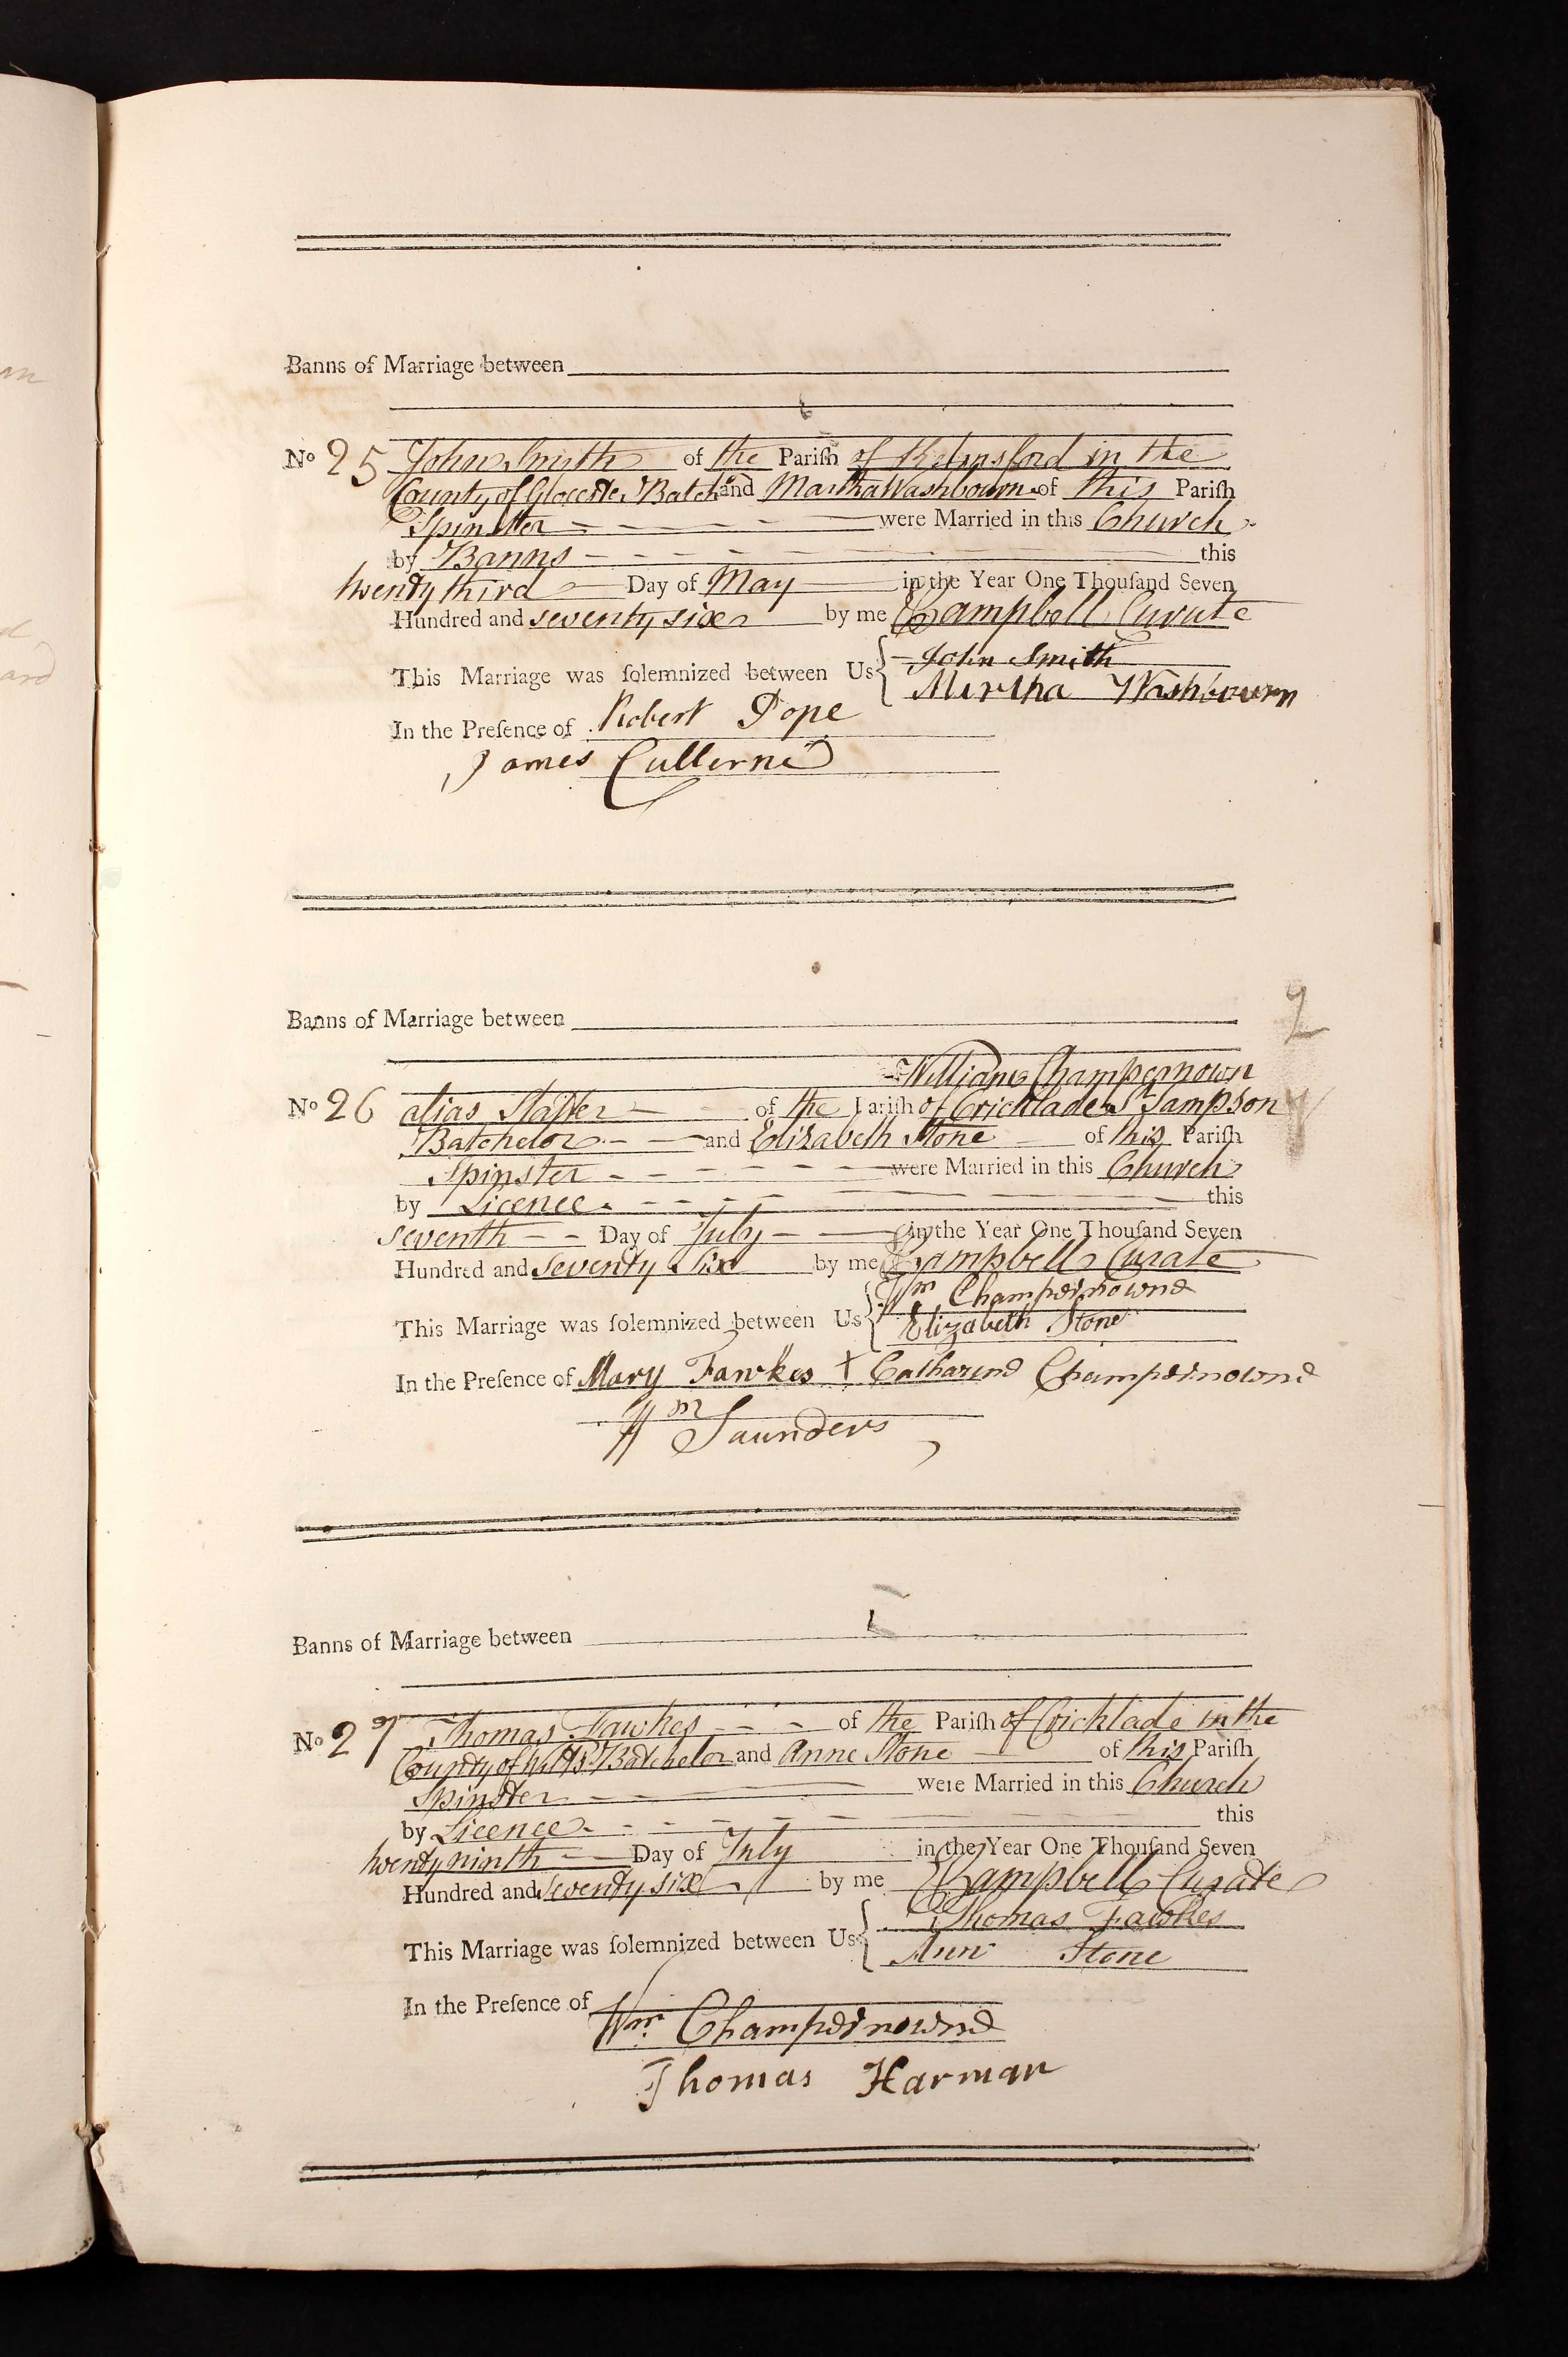 Banns of Marriage between
No 25 John Smith of the Pariſh of Kelmsford in the
County of Glocester Batchr and Martha Washbourn of this Pariſh
Spinster were Married in this Church
by Banns this
twenty third Day of May in the Year One Thouſand Seven
Hundred and seventy six by me Campbell Curate
This Marriage was ſolemnized between Us { John Smith
Martha Washbourn
In the Preſence of Robert Pope
James Cullerne
Banns of Marriage between
William Champernown
No 26 alias Slapper of the Pariſh of Cricklade St Sampson
Batchelor and Elizabeth Stone of this Pariſh
Spinster were Married in this Church
by Licence this
seventh Day of July in the Year One Thouſand Seven
Hundred and seventy Six by me Campbell Curate
This Marriage was ſolemnized between Us { Wm Champernowne
Elizabeth Stone
In the Preſence of Mary Fawkes + Catharine Champernowne
Wm Saunders
2
Banns of Marriage between
No 27 Thomas Fawkes of the Pariſh of Cricklade in the
County of Wilts Batchelor and Anne Stone of this Pariſh
Spinster were Married in this Church
by Licence this
twenty ninth Day of July in the Year One Thouſand Seven
Hundred and Seventy six by me Campbell Curate
This Marriage was ſolemnized between Us { Thomas Fawkes
Ann Stone
In the Preſence of Wm Champernowne
Thomas Harman